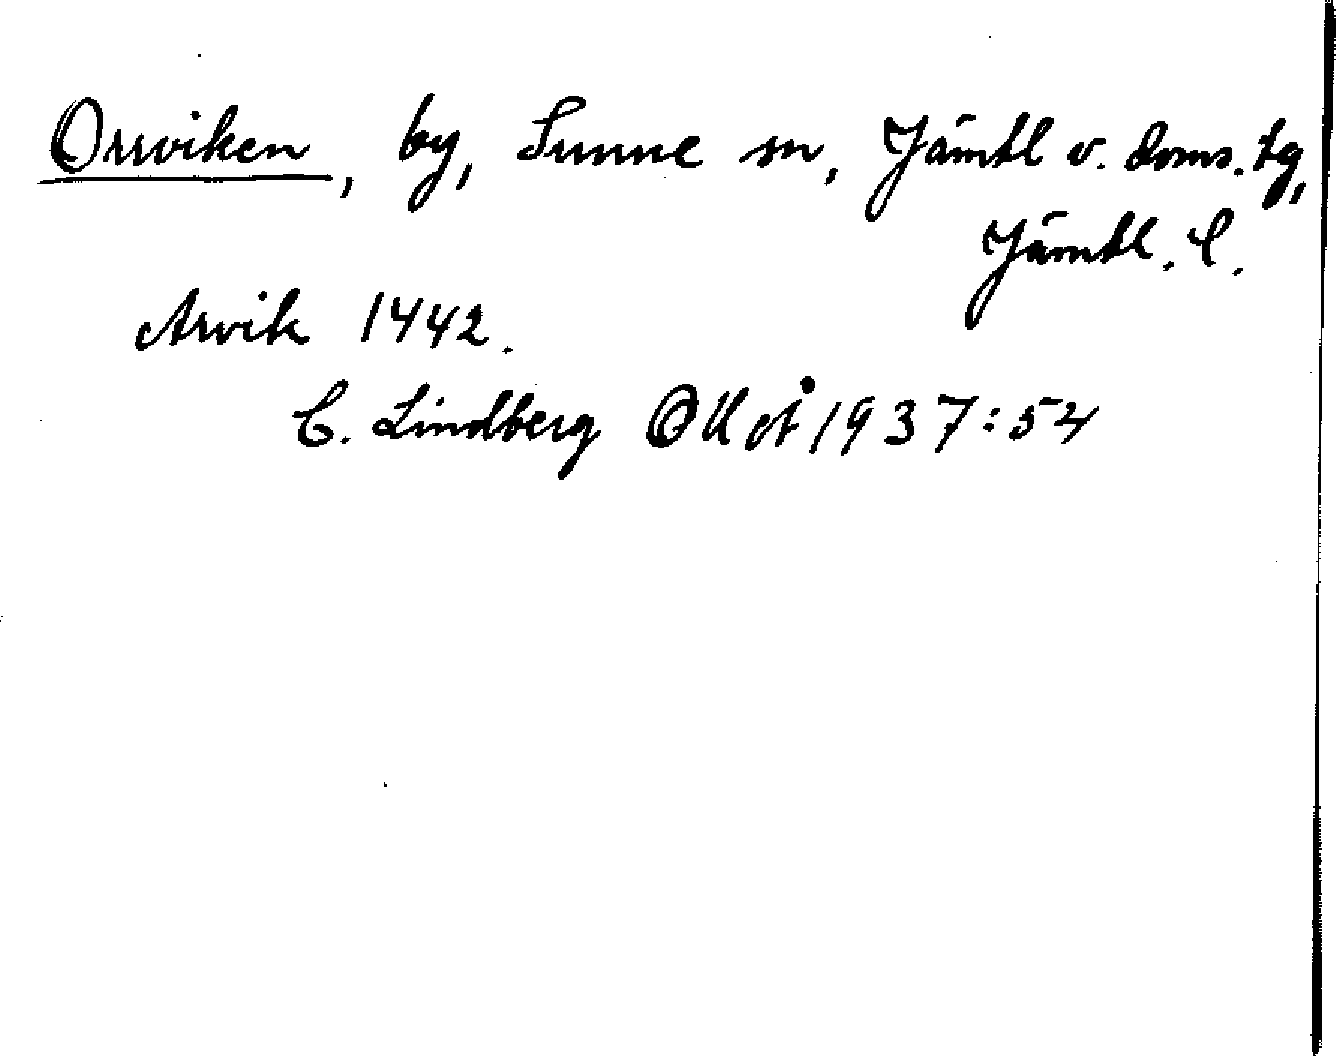 Orrviken, by, Sunne sn, Jämtl v. doms. tg,
Jämtl. l.
Arvik 1442.
C. Lindberg OUÅ 1937:54